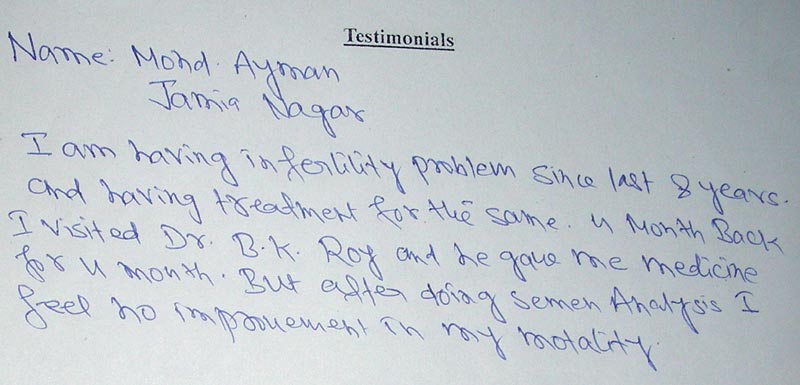 Testimonials
Name: Mohd. Ayman
Jamia Nagar
I am having infertility problem since last 8 years.
and having treatment for the same. 4 Month Back
I visited Dr. B.K. Roy and he gave me medicine
for 4 month. But after doing semen Analysis I
feel no improvement in my motality.